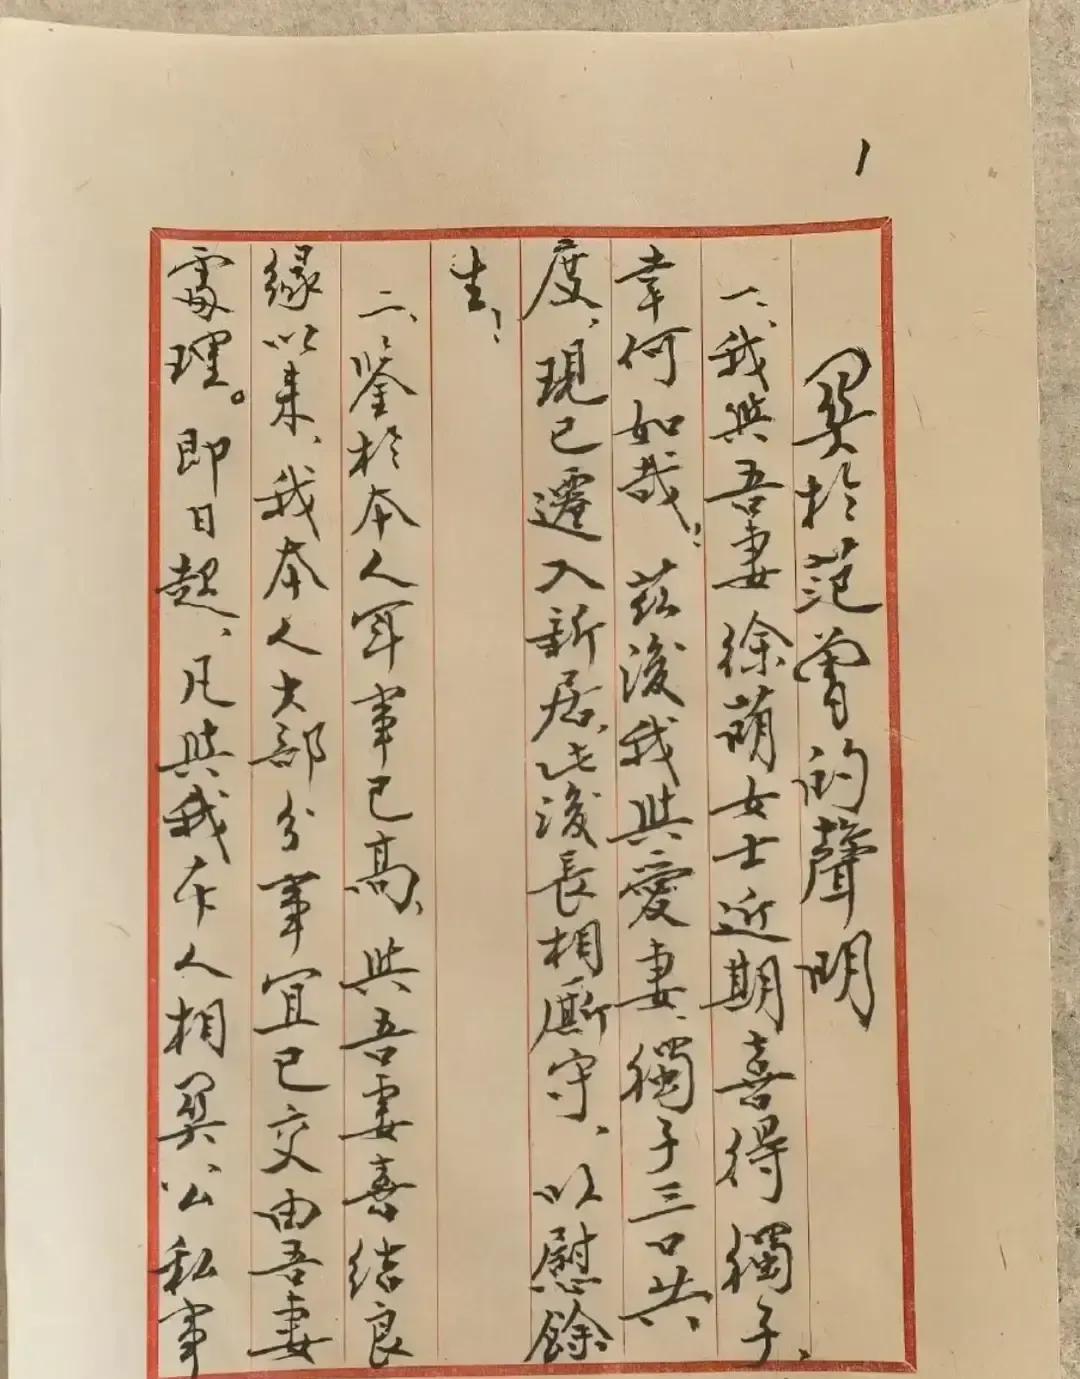 1
關於范曾的聲明
一、我與吾妻徐萌女士近期喜得獨子、
幸何如哉！茲後我與愛妻、獨子三口共
度、現已遷入新居、此後長相廝守、以慰餘
生！
二、鑒於本人年事已高、與吾妻喜結良
緣以來、我本人大部分事宜已交由吾妻
處理。即日起、凡與我本人相關公私事